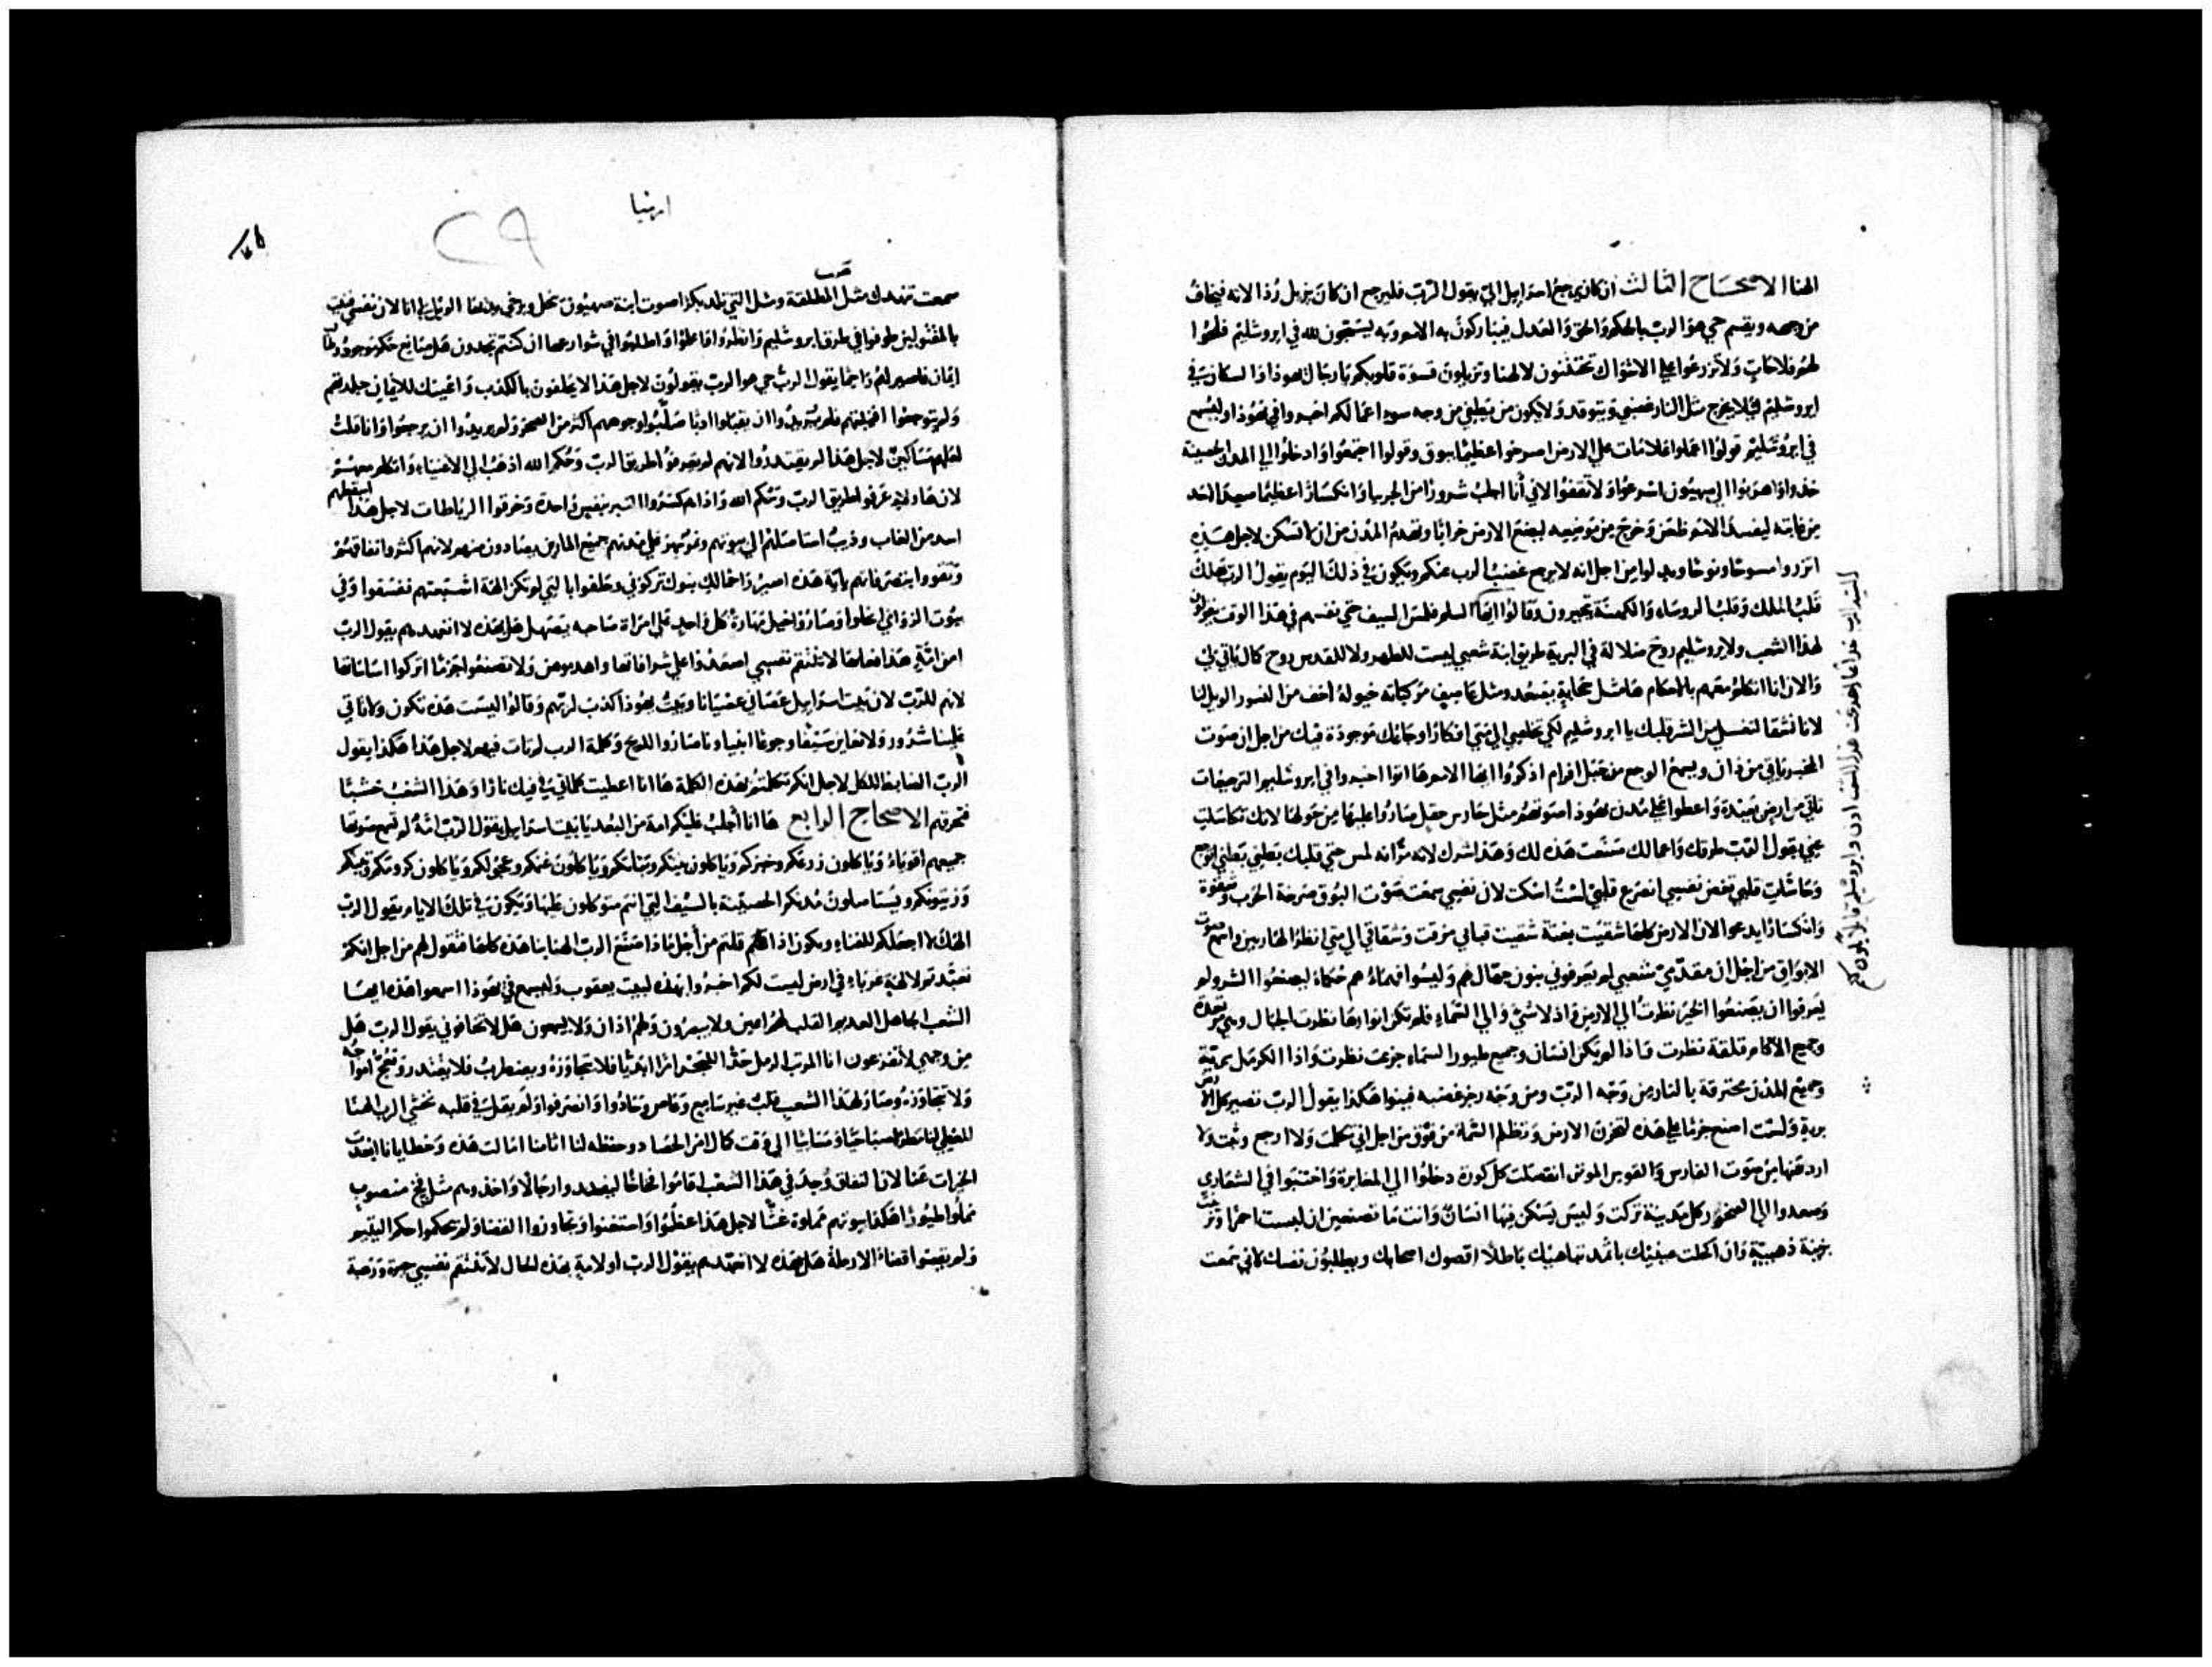 الهنا الاصحاح الثالث ان كان يرجع اسرايل الي يقول الرب فليرجع ان كان يزيل رذالاته فيخاف
من وجهه ويقسم حي هو الرب بالحكم والحق والعدل فيباركون به الامم وبه يسبحون لله في ايروشليم فلحوا
لهم فلاحات ولا تزرعوا علي الاشواك تختتنون لالهنا وتزيلون قسوة قلوبكم يا رجال يهوذا والسكان في
ايروشليم ليلا يخرج مثل النار غضبي ويتوقد ولا يكون من يطفي من وجه سو اعمالكم اخبروا في يهوذا وليسمع
في ايروشليم قولوا اعملوا علامات علي الارض اصرخوا عظيما ببوق وقولوا اجتمعوا وادخلوا الي المدن الحصينة
خذوا واهربوا الي صهيون اسرعوا ولا تقفوا لاني أنا اجلب شرورا من الجربيا وانكسارا عظيما صعد الاسد
من غابته ليفسد الامم ظعن وخرج من موضعه ليضع الارض خرابا وتهدم المدن من ان لا تسكن لاجل هذه
اتزروا مسوحا ونوحوا وولولوا من اجل انه لا يرجع غضب الرب عنكم ويكون في ذلك اليوم يقول الرب يهلك
قلب الملك وقلب الروساء والكهنة يتحيرون وقالوا ايها السلم فلمس السيف حتي نفسهم في هذا الوقت يقولون
لهذا الشعب ولايروشليم روح ضلالة في البرية طريق ابنة شعبي ليست للطهر ولا للقدس روح كال ياتي لي
والان انا اتكلم معهم بالاحكام ها مثل سحابة يصعد ومثل عاصف مركباته خيوله اخف من النسور الويل لنا
لانا نشقا اغسلي من الشر قلبك يا ايروشليم لكي تخلصي الي متي افكار اوجاعك موجودة فيك من اجل ان صوت
المخبر ياتي من دان ويسمع الوجع من جبل افرام اذكروا ايها الامم ها اتوا اخبروا في ايروشليم الترجعات
تاتي من ارض بعيدة واعطوا علي مدن يهوذا صوتهم مثل حارس حقل صاروا عليها من حولها لانك تكاسلت
عني يقول الرب طرقك واعمالك صنعت هذه لك وهذا شرك لانه مر انه لمس حتي قلبك بطني بطني اتوجع
وحاشات قلبي تغض نفسي انصرع قلبي لست اسكت لان نفسي سمعت صوت البوق صرخة الحرب وشقوة
وانكسارا يدعوا لان الارض كلها شقيت بغتة شقيت قبابي مزقت وشقاقي الي متي انظر الهاربين واسمع صوت
الابواق من اجل ان مقدمي شعبي لم يعرفوني بنون جهال هم وليسوا فهماء هم حكماء ليصنعوا الشر ولم
يعرفوا ان يصنعوا الخير نظرت الي الارض واذ لا شي والي السماء فلم تكن انوارها نظرت الجبال وهي مرتعدة
وجميع الاكام قلقة نظرت فاذا لم يكن انسان وجميع طيور السماء جزعت نظرت واذا الكرمل برية
وجميع المدن محترقة بالنار من وجه الرب ومن وجه رجز غضبه فبنوا هكذا يقول الرب تصير كل الارض
برية ولست اصنع جزما علي هذه لتحزن الارض وتظلم السماء من فوق من اجل اني تكلمت ولا ارجع وثبت ولا
ارد عنها من صوت الفارس والقوس الموتر انفصلت كل كورة دخلوا الي المغاير واختبوا في الشعاري
وصعدوا الي الصخور كل مدينة تركت وليس يسكن فيها انسان وانت ما تصنعين ان لبست احمرا وتزينت
بزينة ذهبية وان اكحلت عينيك باثمد تباهيك باطلا اقصوك اصحابك ويطلبون نفسك لاني سمعت
ارميا
٢٩
سمعت تنهدك مثل المطلقة ومثل التي تلد بكرا صوت ابنة صهيون تنحل وترخي يديها الويل لي انا لان نفسي فنيت
بالمقتولين طوفوا في طرق ايروشليم وانظروا واعلموا واطلبوا في شوارعها ان كنتم تجدون هل صانع حكم موجود وطالب
ايمان فاصير لهم راحما يقول الرب حي هو الرب يقولون لاجل هذا الا يحلفون بالكذب واعينك للايمان جلدتهم
ولم يتوجعوا افنيتهم فلم يريدوا ان يقبلوا ادبا صلبوا وجوههم اكثر من الصخر ولم يريدوا ان يرجعوا وانا قلت
لعلهم مساكين لاجل هذا لم يقتدروا لانهم لم يعرفوا طريق الرب وحكم الله اذهب الي الاغنياء واتكلم معهم
لان هاولاي عرفوا طريق الرب وحكم الله واذا هم كسروا النير بنفس واحدة وخرقوا الرباطات لاجل هذا اسقطهم
اسد من الغاب وذيب استاصلهم الي بيوتهم ونمر سهر علي مدنهم جميع المارين يصادون منهم لانهم اكثروا نفاقهم
وتقووا بنصرفاتهم باية هذه اصير راحما لك بنوك تركوني وحلفوا بالتي لم تكن الهة اشبعتهم ففسقوا وفي
بيوت الزواني اعلوا وصاروا خيل مهارة كل واحد علي امراة صاحبه يصهل هل بهذه لا اتعهدهم يقول الرب
لانهم للرب لان بيت اسرايل عصاني عصيانا وبيت يهوذا كذب لربهم وقالوا ليست هذه تكون ولا تاتي
علينا شرور ولا نعاين سيفا وجوعا انبياونا صاروا للريح وكلمة الرب لم تات فيهم لاجل هذا هكذا يقول
الرب الضابط الكل لاجل انكم تكلمتم بهذه الكلمة ها انا اعطيت كلماتي في فيك نارا وهذا الشعب خشبا
فتحرقهم الاصحاح الرابع ها انا أجلب عليكم امة من البعد يا بيت اسرايل يقول الرب امة لم تسمع صوتها
جميعهم اقوياء وياكلون زرعكم وخبزكم وياكلون بنيكم وبناتكم وياكلون غنمكم وعجولكم وياكلون كرومكم وتينكم
وزيتونكم ويستاصلون مدنكم الحصينة بالسيف التي انتم متوكلون عليها ويكون في تلك الايام يقول الرب
الهك لا اجعلكم للفناء ويكون اذا قلتم من أجل ماذا صنع الرب الهنا بنا هذه كلها فتقول لهم من اجل انكم
تعبدتم لالهة غرباء في ارض ليست لكم اخبروا بهذه لبيت يعقوب وليسمع في يهوذا اسمعوا هذه ايها
الشعب الجاهل العديم القلب لهم اعين ولا يبصرون ولهم اذان ولا يسمعون هل لا تخافوني يقول الرب هل
من وجهي لا تفزعون انا المرتب الرمل حدا للبحر امرا ابديا فلا يتجاوزه ويضطرب فلا يقتدر وتضج امواجه
ولا تتجاوزه وصار لهذا الشعب قلب غير سامع وعاص وحادوا وانصرفوا ولم يقل في قلبه نخشي الرب الهنا
المعطي لنا مطرا صباحيا ومسائيا الي وقت كمال امر الحصاد وحفظه لنا اثامنا امالت هذه وخطايانا ابعدت
الخيرات عنا لان النفاق وجد في هذا الشعب اقاموا فخاخا ليفسدوا رجالا واخذوهم مثل فخ منصوب
مملوا طيورا هكذا بيوتهم مملوة غشا لاجل هذا عظموا واستغنوا وتجاوزوا القضاء ولم يحكموا حكم اليتيم
ولم يقضوا قضاء الارملة هل بهذه لا اتعهدهم يقول الرب او لامة بهذه الحال لا تنتقم نفسي حيرة ورعبة